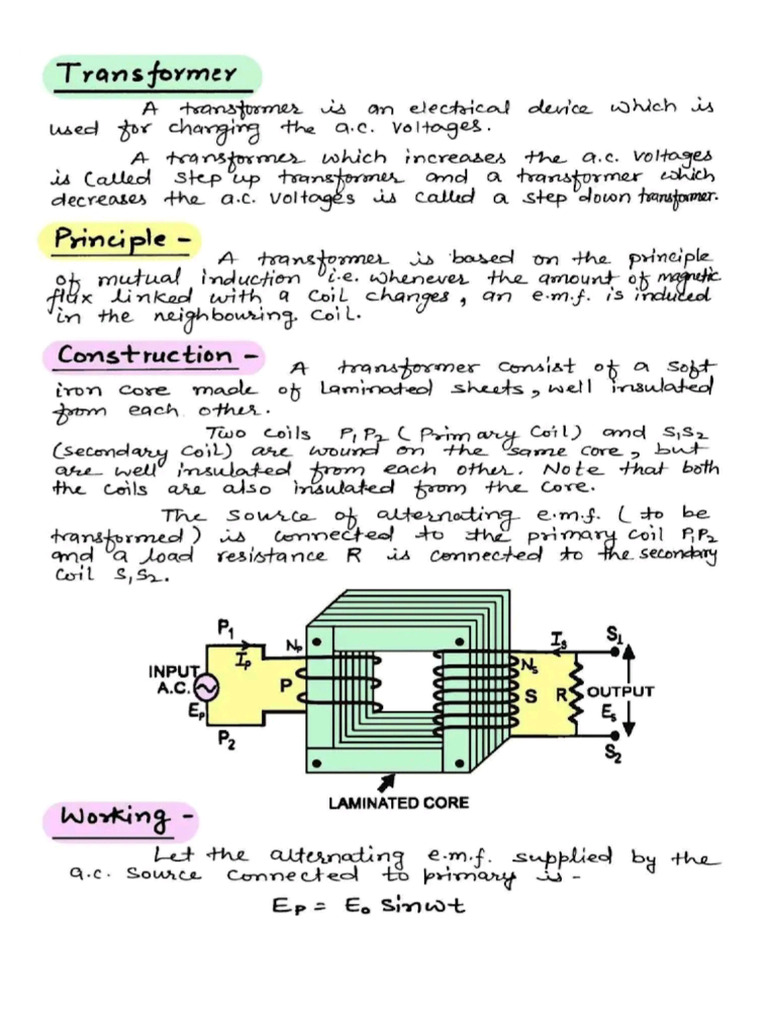 Transformer
A transformer is an electrical device which is
used for charging the a.c. voltages.
A transformer which increases the a.c. voltages
is called step up transformer and a transformer which
decreases the a.c. voltages is called a step down transformer.
Principle -
A transformer is based on the principle
of mutual induction i.e. whenever the amount of magnetic
flux linked with a coil changes, an e.m.f. is induced
in the neighbouring coil.
Construction -
A transformer consist of a soft
iron core made of laminated sheets, well insulated
from each other.
Two coils P₁P₂ (Primary Coil) and S₁S₂
(secondary coil) are wound on the same core, but
are well insulated from each other. Note that both
the coils are also insulated from the core.
The source of alternating e.m.f. (to be
transformed) is connected to the primary coil P₁P₂
and a load resistance R is connected to the secondary
coil S₁S₂.
P₁
Iₚ
Nₚ
INPUT
A.C.
Eₚ
P
P₂
Iₛ
S₁
Nₛ
S
R
OUTPUT
Eₛ
S₂
LAMINATED CORE
Working -
Let the alternating e.m.f. supplied by the
a.c. source connected to primary is -
Eₚ = E₀ Sinωt